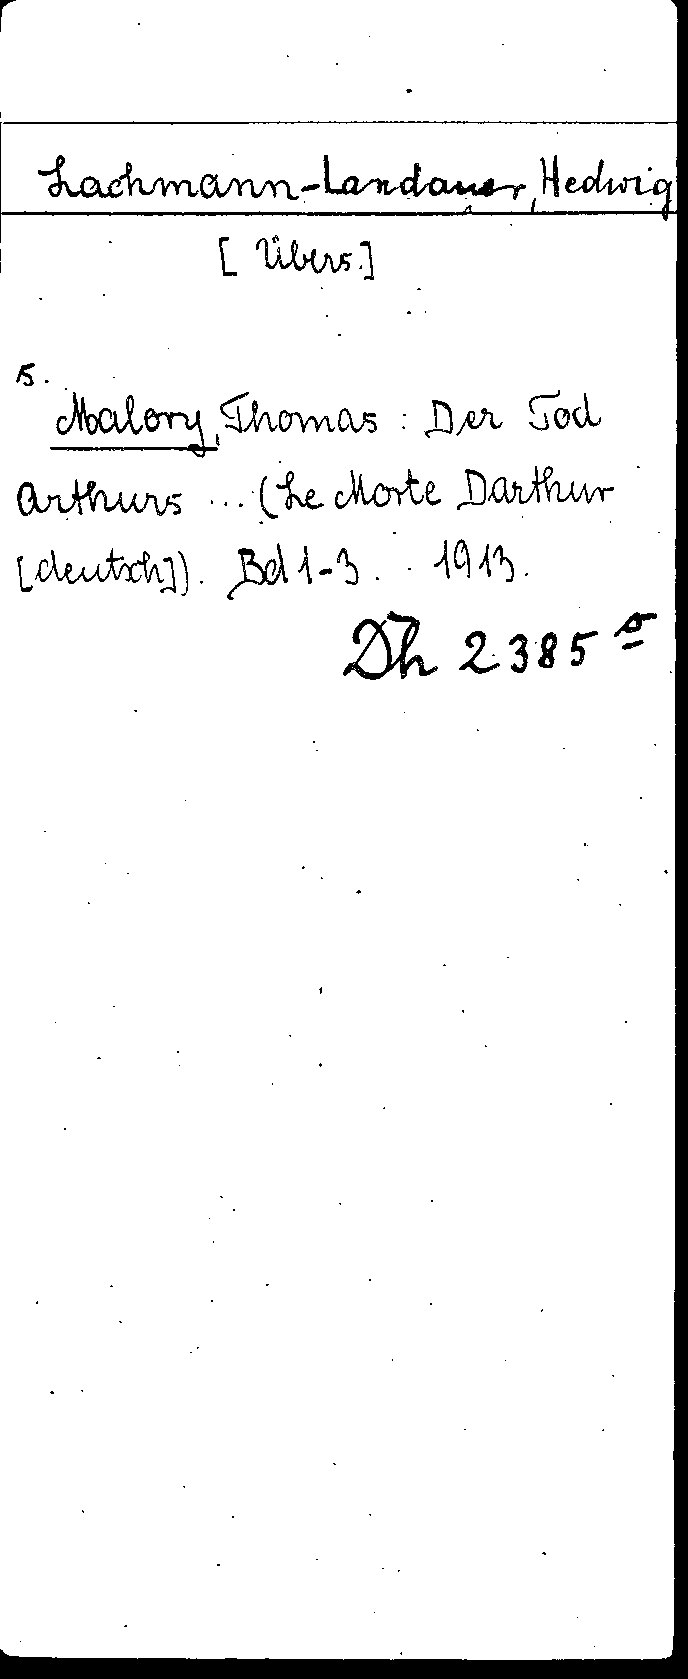 Lachmann-Landauer, Hedwig
[Übers.]
5.
Malory, Thomas: Der Tod
Arthurs ... (Le Morte Darthur
[deutsch]). Bd 1-3. 1913.
Dh 2385